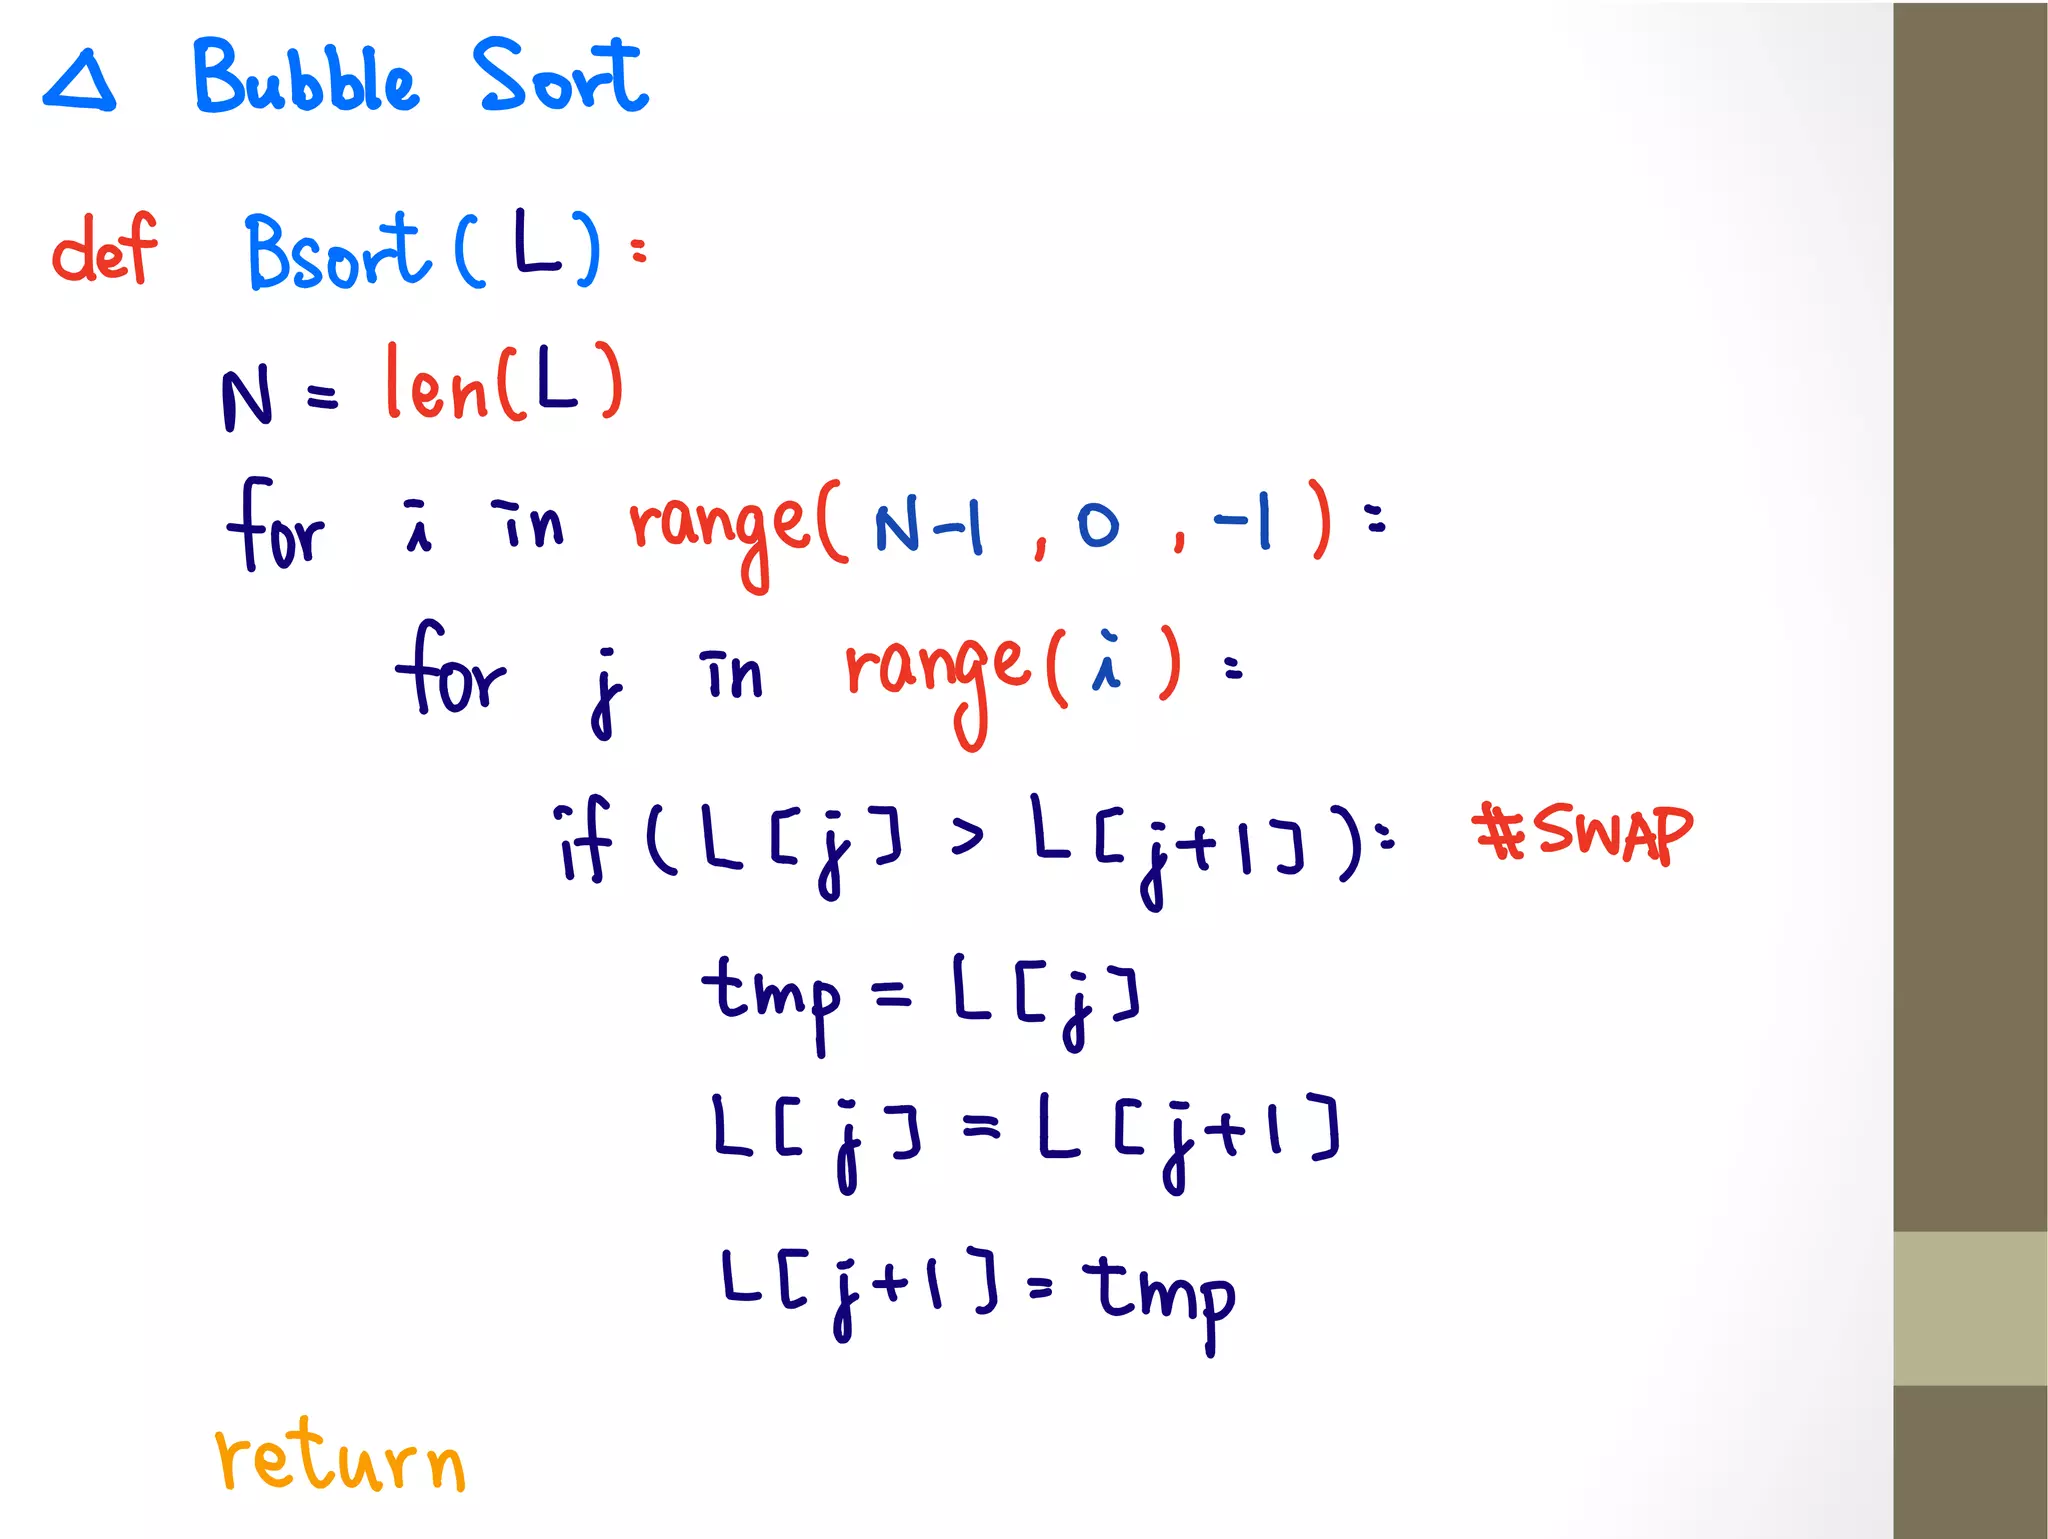 △ Bubble Sort
def Bsort(L):
N = len(L)
for i in range(N-1, 0, -1):
for j in range(i):
if(L[j] > L[j+1]): #SWAP
tmp = L[j]
L[j] = L[j+1]
L[j+1] = tmp
return